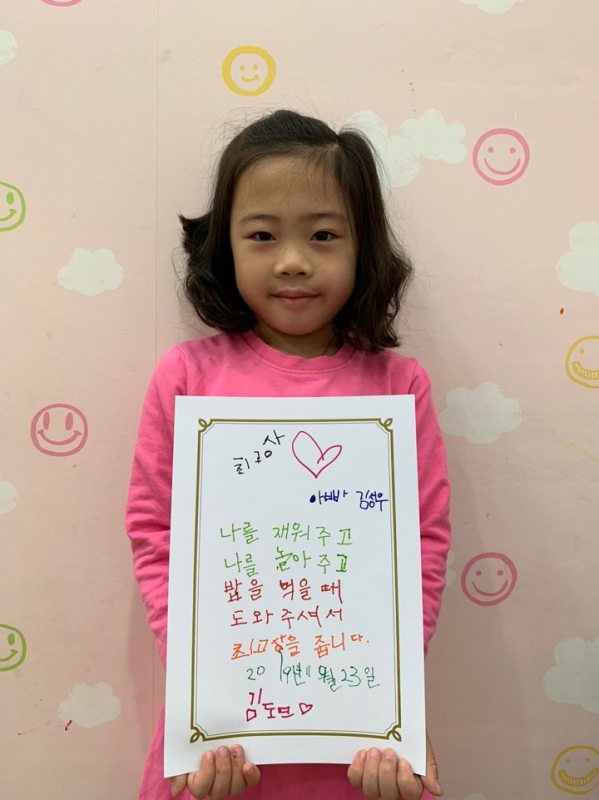 최공상
아빠 김성우
나를 재워 주고
나를 놀아 주고
밥을 먹을 때
도와 주셔서
최고상을 줍니다.
20 19년 월 23일
김도